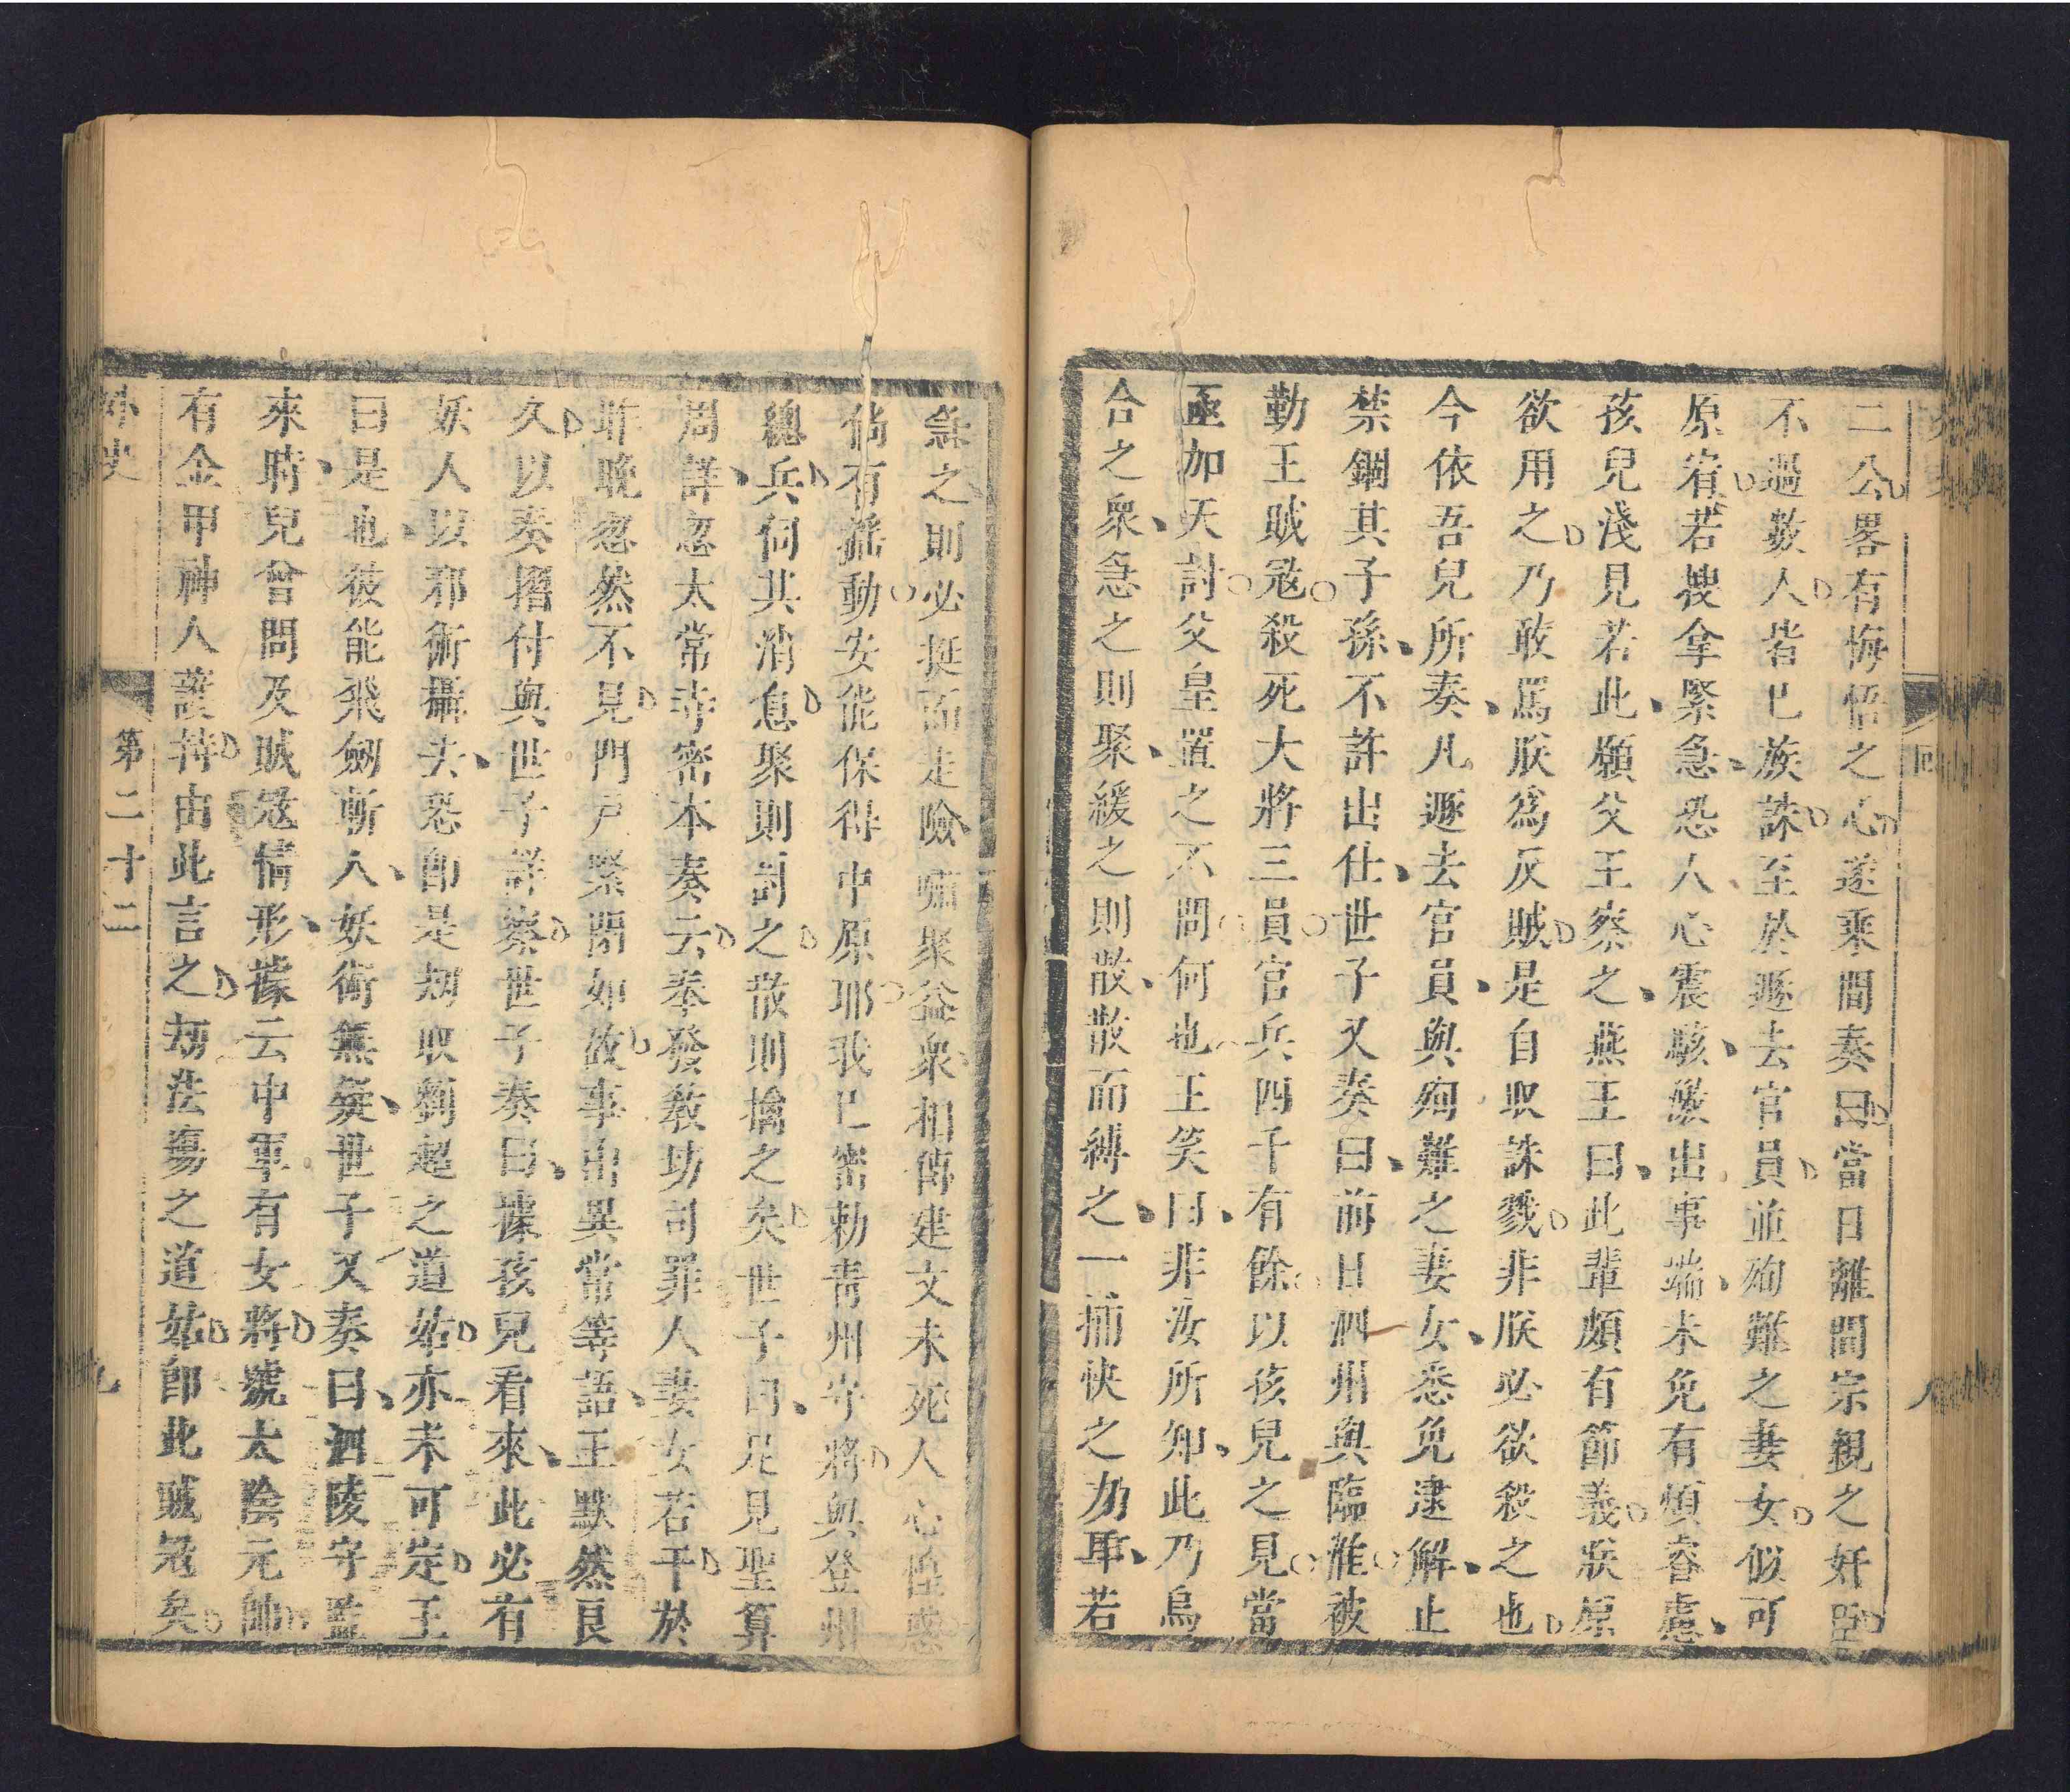 二公畧有悔悟之心遂乘間奏曰當日離間宗親之奸臣
不過數人皆已族誅至於遯去官員並殉難之妻女似可
原宥若搜拿緊急恐人心震駭激出事端未免有煩睿慮
孩兒淺見若此願父王察之燕王曰此輩頗有節義朕原
欲用之乃敢罵朕爲反賊是自取誅戮非朕必欲殺之也
今依吾兒所奏凡遯去官員與殉難之妻女悉免逮解止
禁錮其子孫不許出仕世子又奏曰前日泗州與臨淮被
勤王賊冦殺死大將三員官兵四千有餘以孩兒之見當
亟加天討父皇置之不問何也王笑曰非汝所知此乃烏
合之衆急之則聚緩之則散散而縛之一捕快之力耳若
急之則必挺而走險嘯聚益衆相傳建文未死人心惶惑
倘有搖動安能保得中原耶我已密勅青州守將與登州
總兵伺其消息聚則討之散則擒之矣世子曰足見聖算
周詳忽太常寺密本奏云奉發敎坊司罪人妻女若干於
昨晚忽然不見門戸緊閉如故事出異常等語王默然良
久以奏摺付與世子詳察世子奏曰據孩兒看來此必有
妖人以邪術攝去恐即是刼取劉超之道姑亦未可定王
曰是也彼能飛劒斬人妖術無疑世子又奏曰泗陵守監
來時兒曾問及賊冦情形據云中軍有女將號太陰元帥
有金甲神人護持由此言之刼法塲之道姑卽此賊冦矣
外史
第二十二
九
回
八